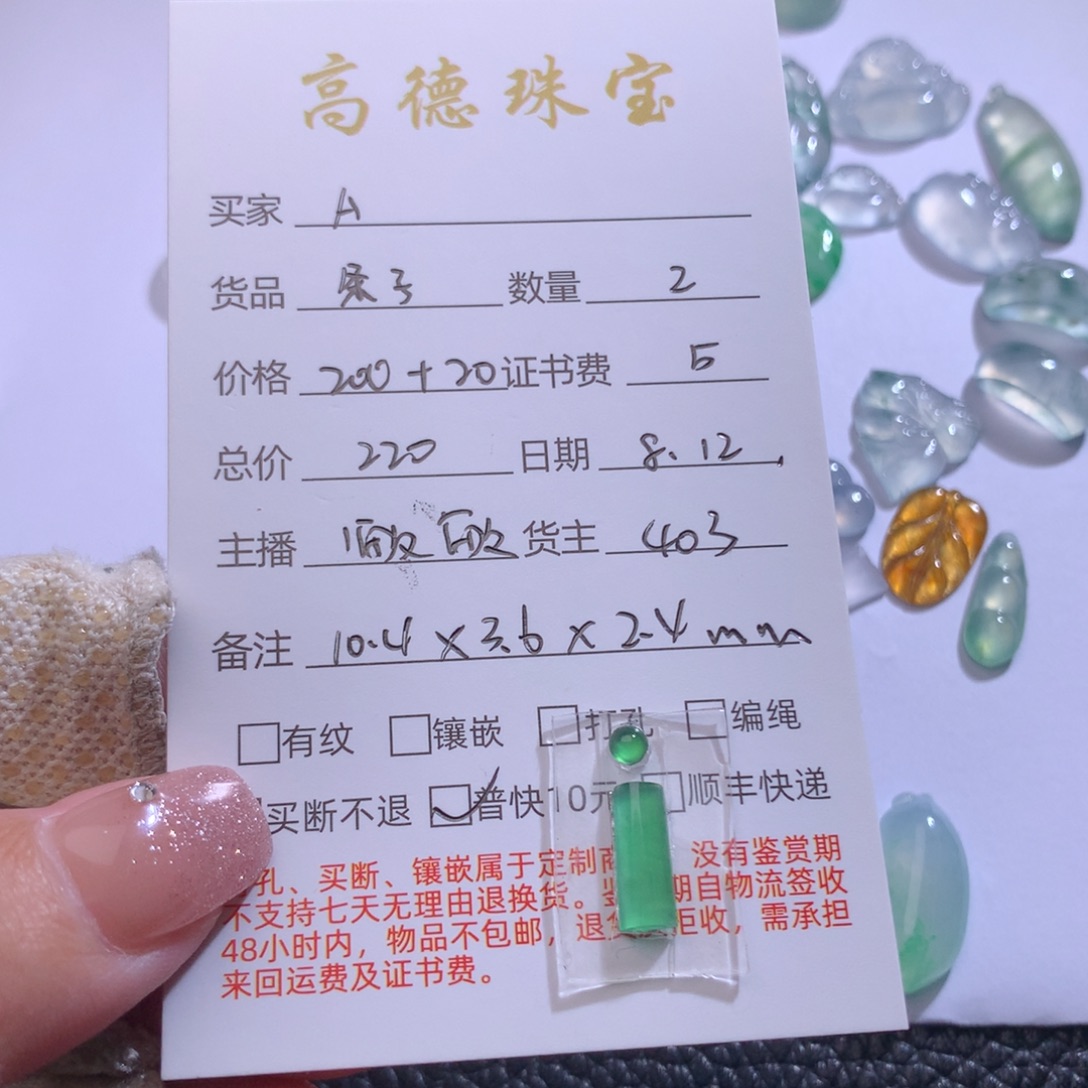 高德珠宝
买家 A
货品 条子 数量 2
价格 200+20 证书费 5
总价 220 日期 8.12
主播 货主 403
备注 10.4×3.6×2.4mm
□有纹 □镶嵌 □打孔 □编绳
买断不退 ☑普快10元 □顺丰快递
孔、买断、镶嵌属于定制商 没有鉴赏期
不支持七天无理由退换货。鉴 期自物流签收
48小时内，物品不包邮，退 拒收，需承担
来回运费及证书费。